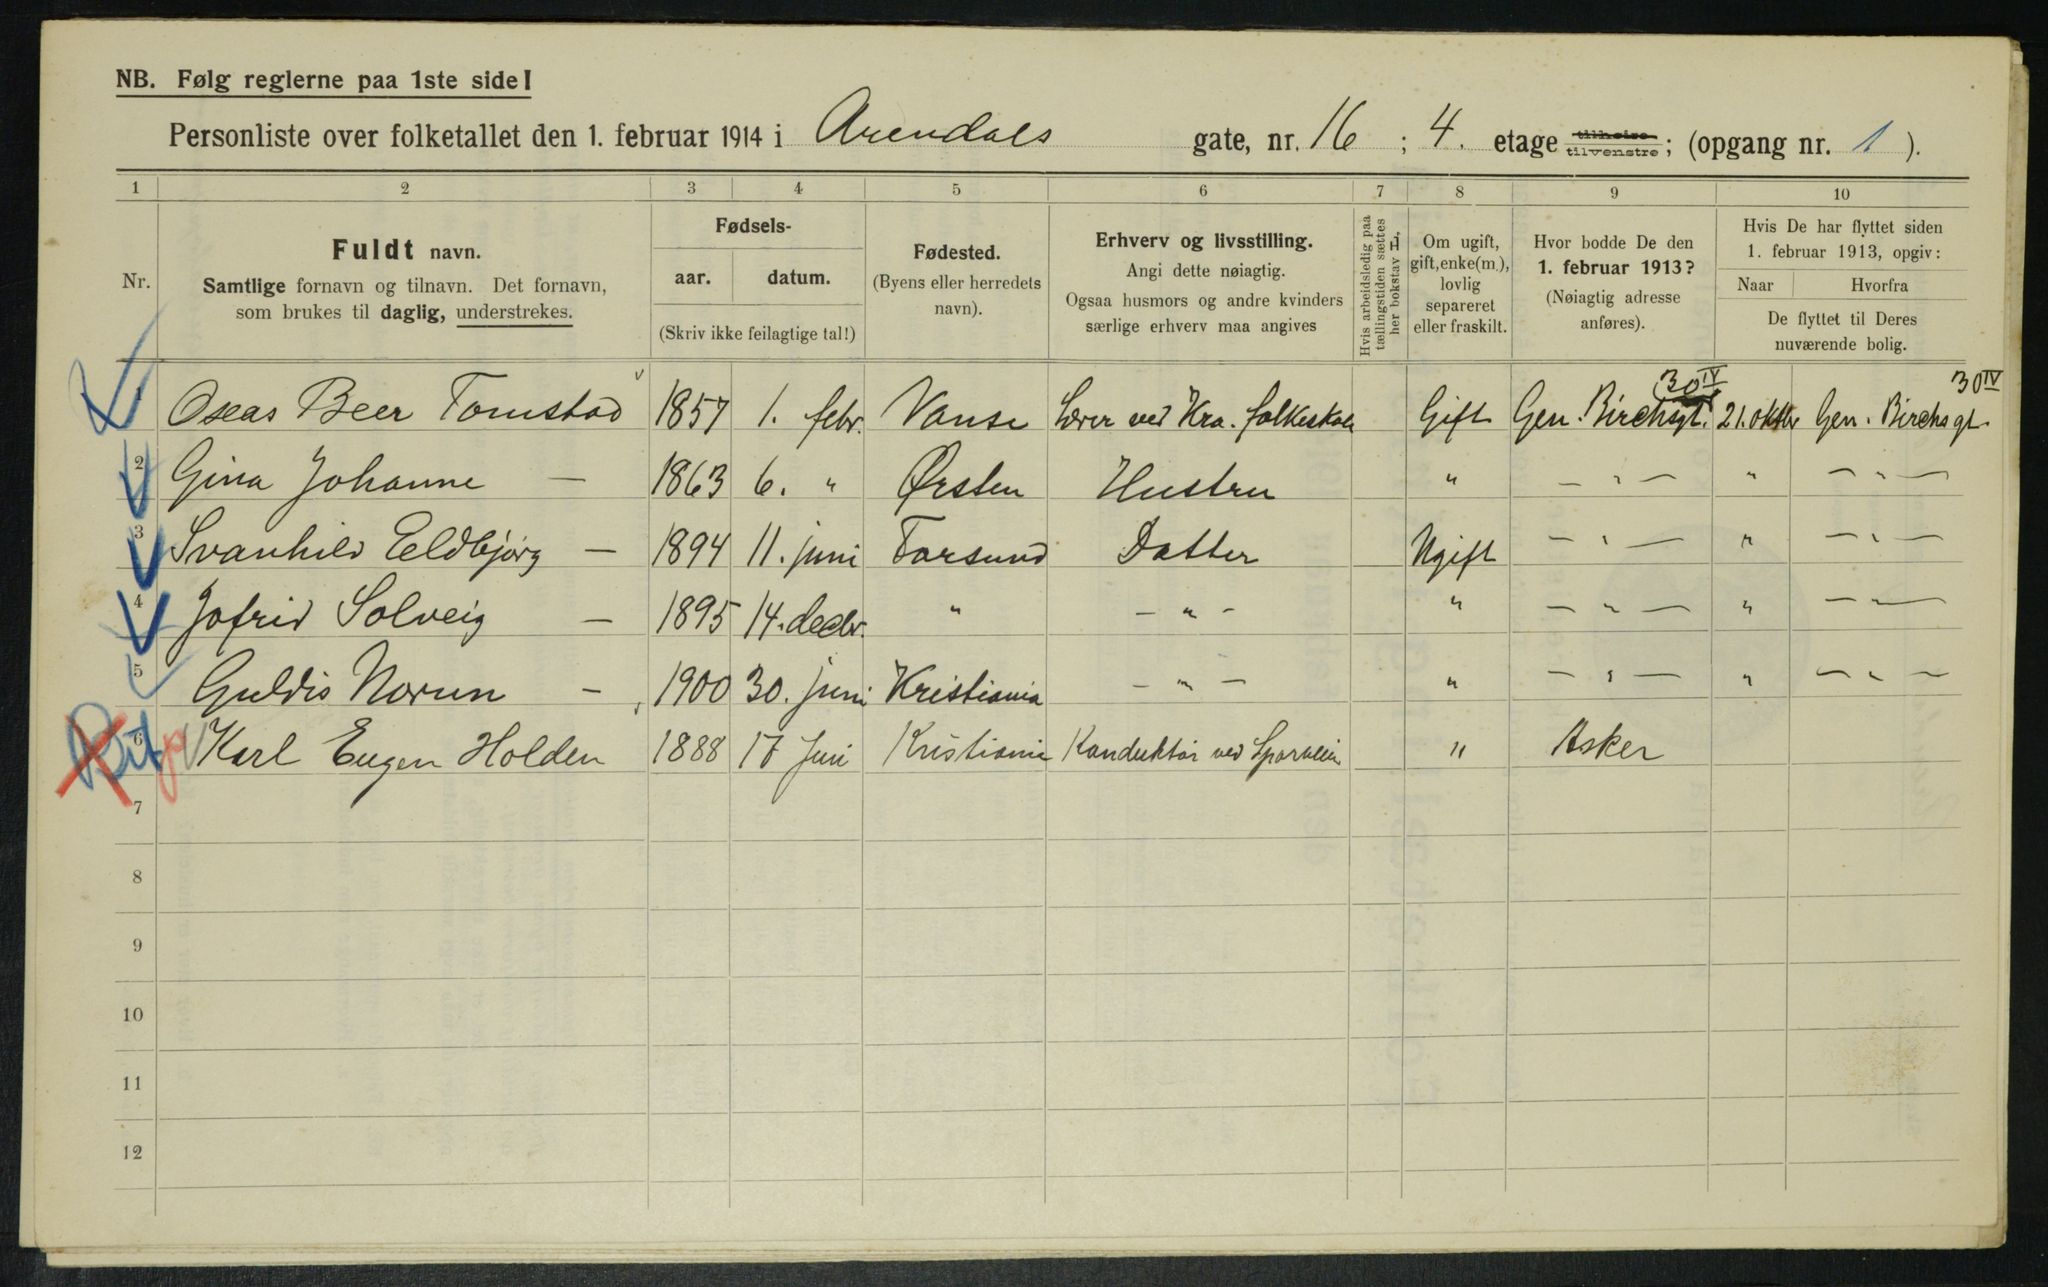 NB. Følg reglerne paa 1ste side!
Personliste over folketallet den 1. februar 1914 i Arendals gate, nr. 16 ; 4. etage tilhøire tilvenstre; (opgang nr. 1 ).
1 2 3 4 5 6 7 8 9 10
Nr.
Fuldt navn.
Samtlige fornavn og tilnavn. Det fornavn,
som brukes til daglig, understrekes.
Fødsels-
aar. datum.
(Skriv ikke feilagtige tal!)
Fødested.
(Byens eller herredets
navn).
Erhverv og livsstilling.
Angi dette nøiagtig.
Ogsaa husmors og andre kvinders
særlige erhverv maa angives
Hvis arbeidsledig paa
tællingstiden sættes
her bokstav L.
Om ugift,
gift, enke(m.),
lovlig
separeret
eller fraskilt.
Hvor bodde De den
1. februar 1913?
(Nøiagtig adresse
anføres).
Hvis De har flyttet siden
1. februar 1913, opgiv:
Naar Hvorfra
De flyttet til Deres
nuværende bolig.
1 Oseas Beer Tomstad 1857 1. febr. Vanse Lærer ved Kra. folkeskole Gift Gen. Birchsgt. 30 IV 21. oktbr Gen. Birchsgt. 30 IV
2 Gina Johanne — 1863 6. " Ørsten Hustru " — " — " — " —
3 Svanhild Eldbjørg — 1894 11. juni Farsund Datter Ugift — " — " — " —
4 Jofrid Solveig — 1895 14. decbr. " — " — " — " — " — " —
5 Guldis Norun — 1900 30. juni Kristiania — " — " — " — " — " —
6 Karl Eugen Holden 1888 17 Juni Kristiania Konduktør ved Sporveien " Asker
7
8
9
10
11
12